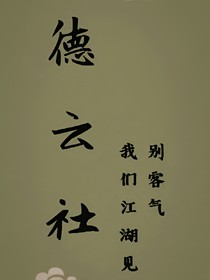 德云社
别客气
我们江湖见